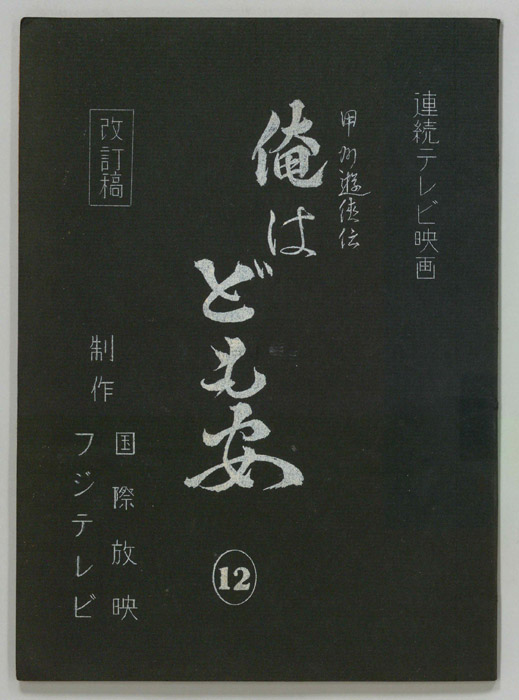 連続テレビ映画
甲州遊侠伝
俺はども安
12
改訂稿
制作
国際放映
フジテレビ